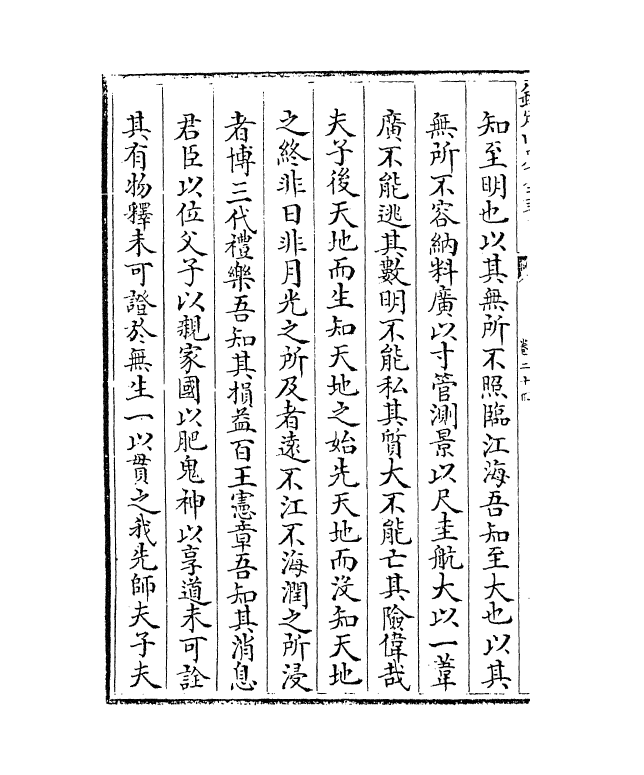 知至明也以其無所不照臨江海吾知至大也以其
無所不容納料廣以寸管測景以尺圭航大以一葦
廣不能逃其數明不能私其質大不能亡其險偉哉
夫子後天地而生知天地之始先天地而没知天地
之終非日非月光之所及者遠不江不海潤之所浸
者博三代禮樂吾知其損益百王憲章吾知其消息
君臣以位父子以親家國以肥鬼神以享道未可詮
其有物釋未可證於無生一以貫之我先師夫子夫